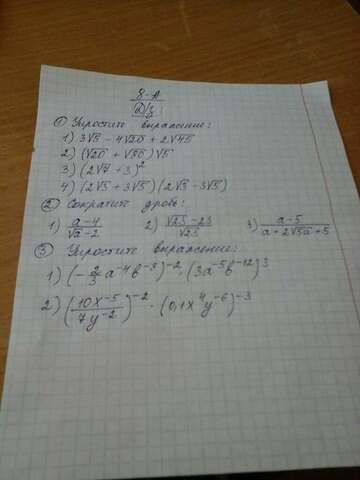 8-А
Д/з:
① Упростите выражение:
1) 3√5 - 4√20 + 2√45
2) (√20 + √80)√5
3) (2√7 + 3)²
4) (2√5 + 3√5)(2√5 - 3√5)
② Сократите дробь:
1) a-4/√a-2 2) √23-23/√23 3) a-5/a+2√5a+5
③ Упростите выражение:
1) (-2/3 a⁻⁴ b⁻³)⁻² · (3a⁻⁵b⁻¹²)³
2) (10x⁻⁵/7y⁻²)⁻² · (0,1x⁴y⁻⁶)⁻³